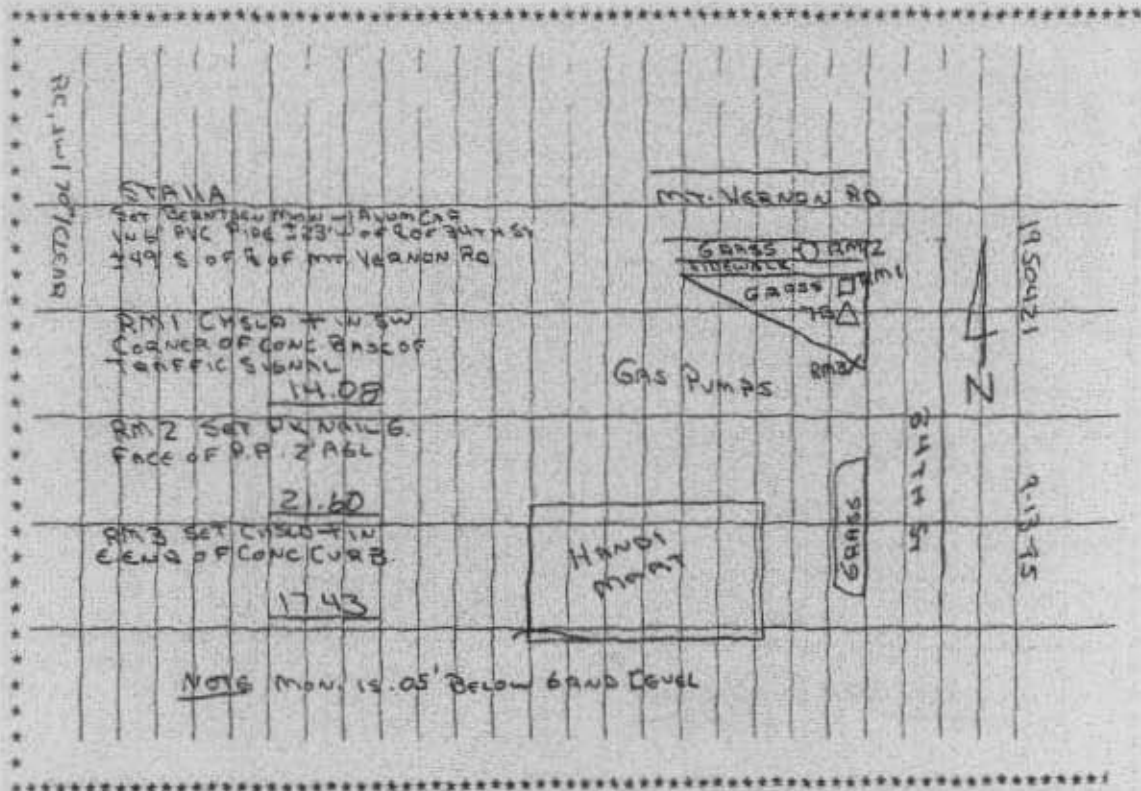 STA 11A
SET BERNTSEN MON W/ ALUM CAP
IN 6" PVC PIPE ±23' W OF ℄ OF 34TH ST
±49' S OF ℄ OF MT. VERNON RD
RM1 CHSLD + IN SW
CORNER OF CONC BASE OF
TRAFFIC SIGNAL
14.08
RM2 SET PK NAIL
FACE OF P.P. 2' AGL
21.60
RM3 SET CHSLD + IN
E END OF CONC CURB.
17.43
NOTE MON. IS .05' BELOW GRND LEVEL
MT. VERNON RD
GRASS RM2
SIDEWALK
RM1
GRASS
RM3
GAS PUMPS
HANDI
MART
GRASS
34TH ST
N
9-13-95
70°/CLEAR